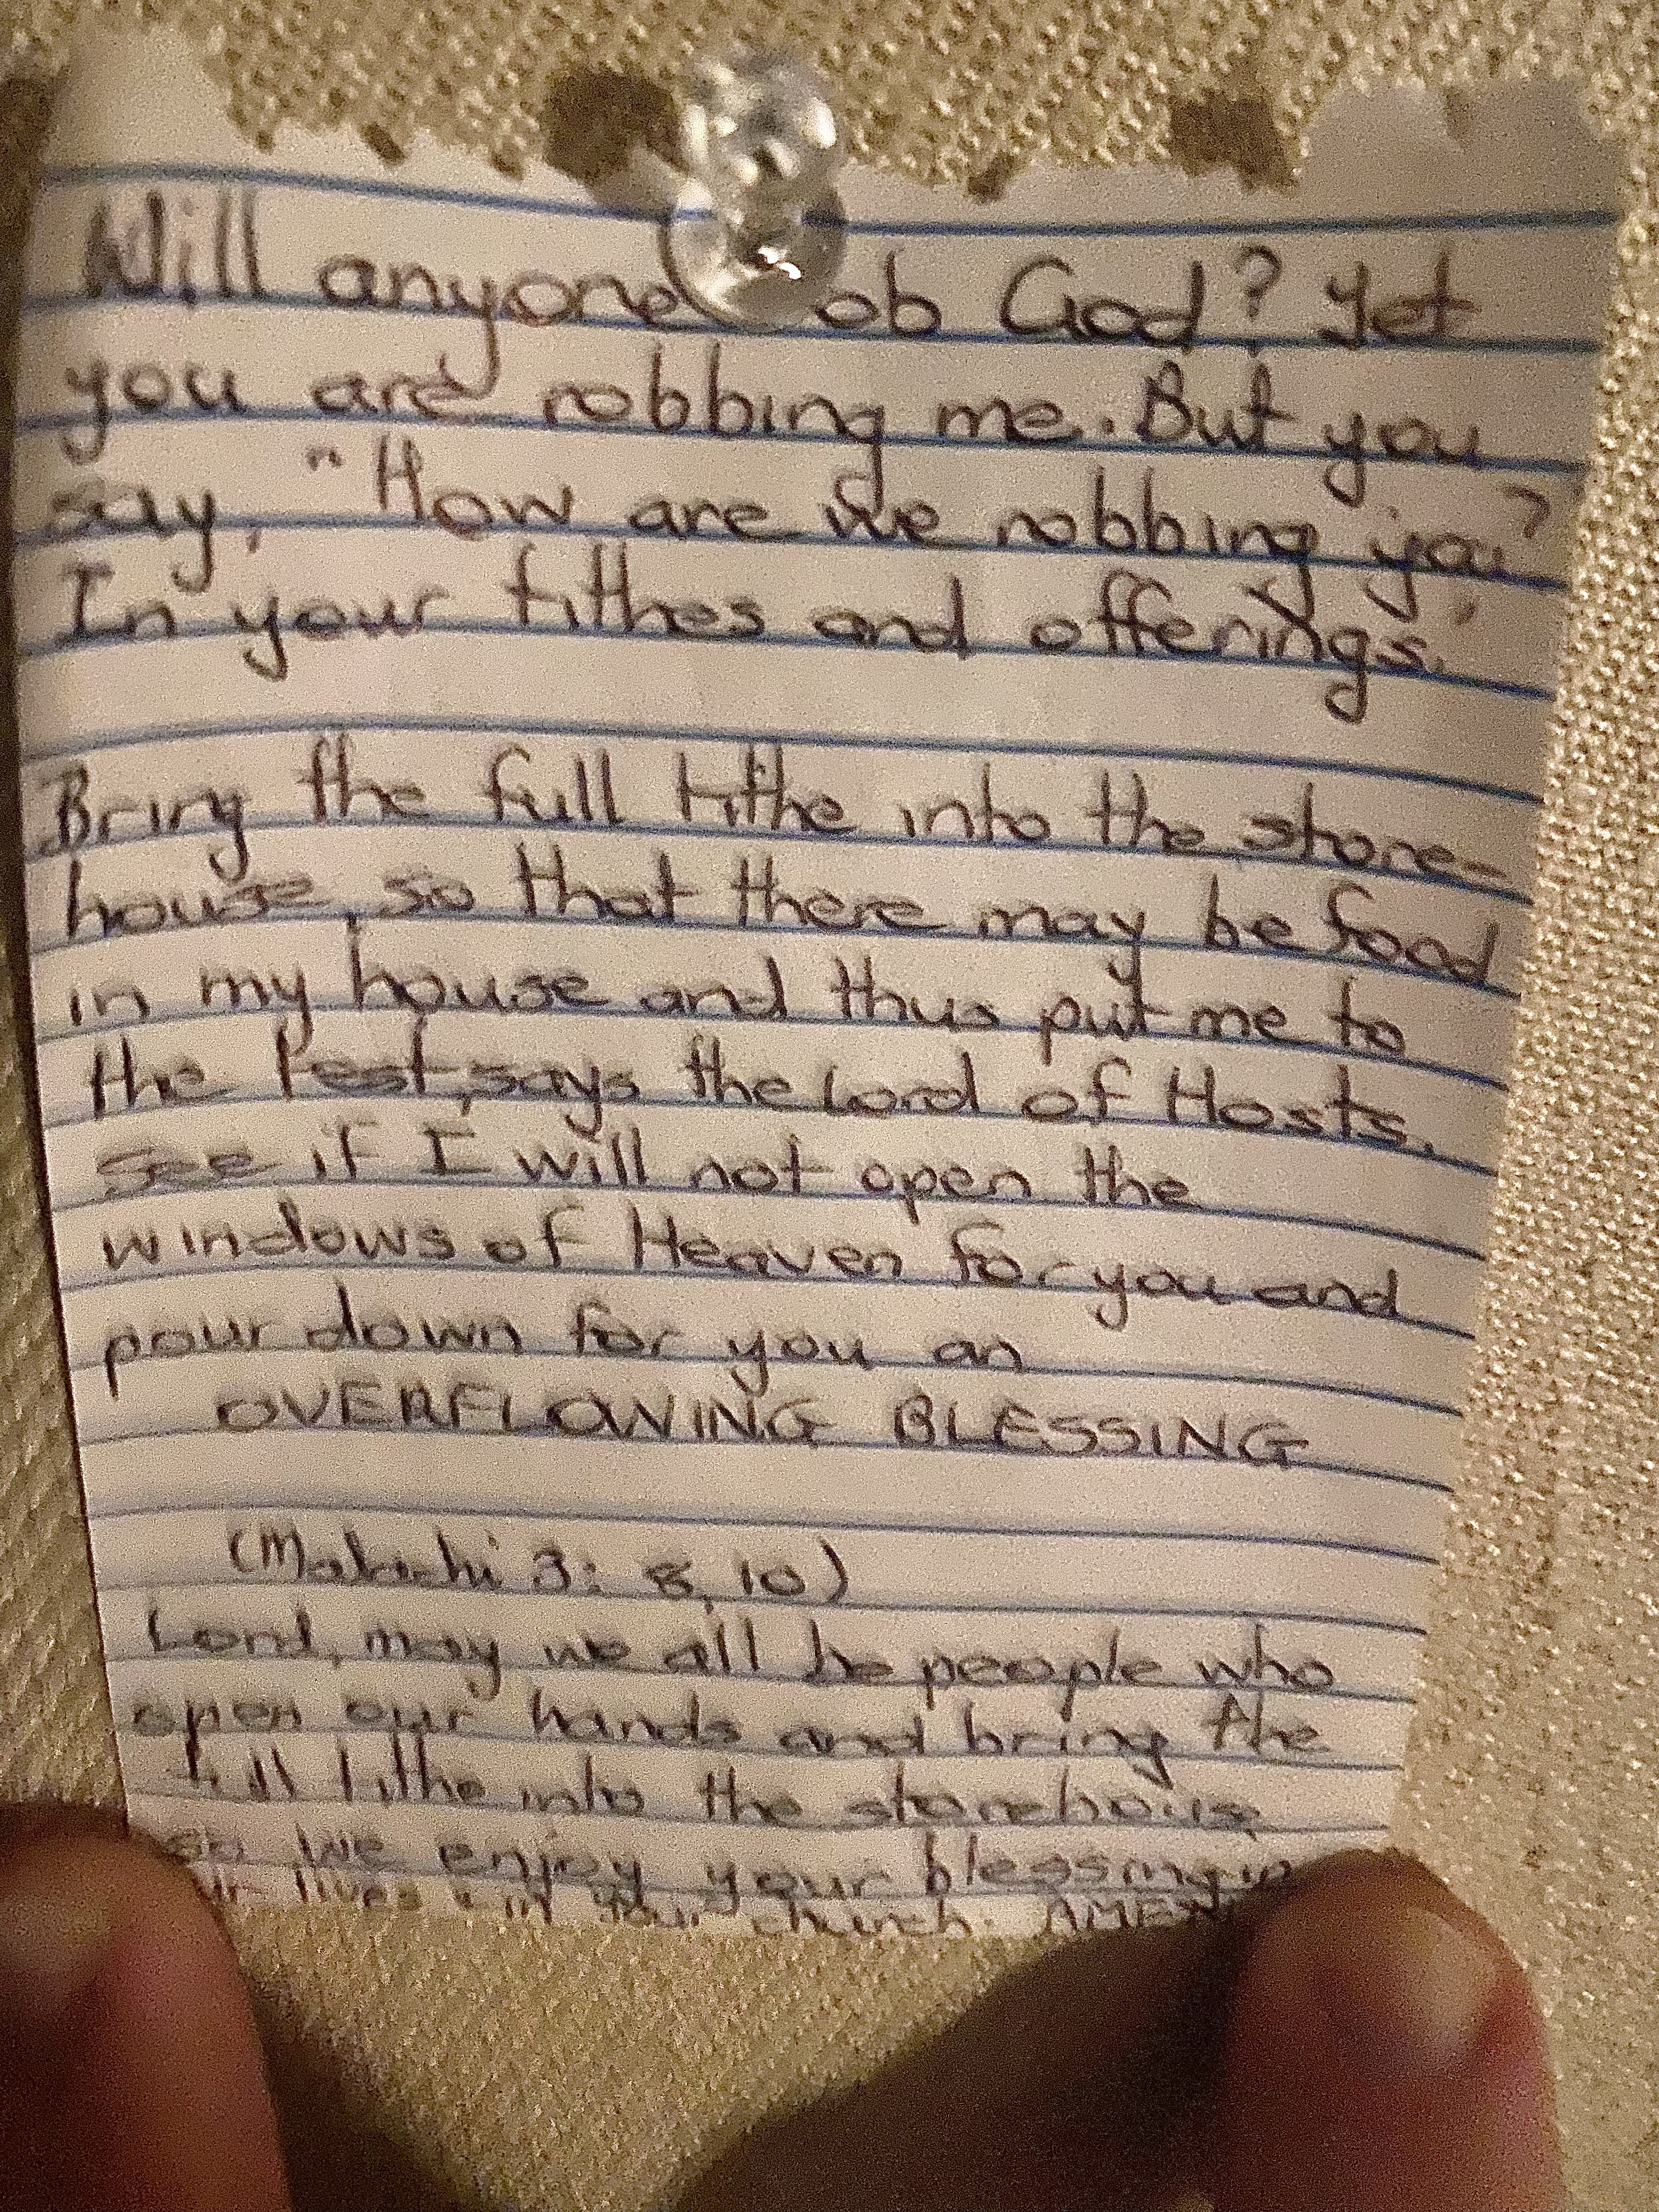 Will anyone ob God? Yet
you are robbing me. But you
say, "How are we robbing you?
In your tithes and offerings.
Bring the full tithe into the store-
house, so that there may be food
in my house and thus put me to
the test, says the Lord of Hosts.
See if I will not open the
windows of Heaven for you and
pour down for you an
OVERFLOWING BLESSING
(Malachi 3: 8, 10)
Lord, may we all be people who
open our hands and bring the
full tithe into the storehouse
so we enjoy your blessing in
ur lives & in your church. AMEN